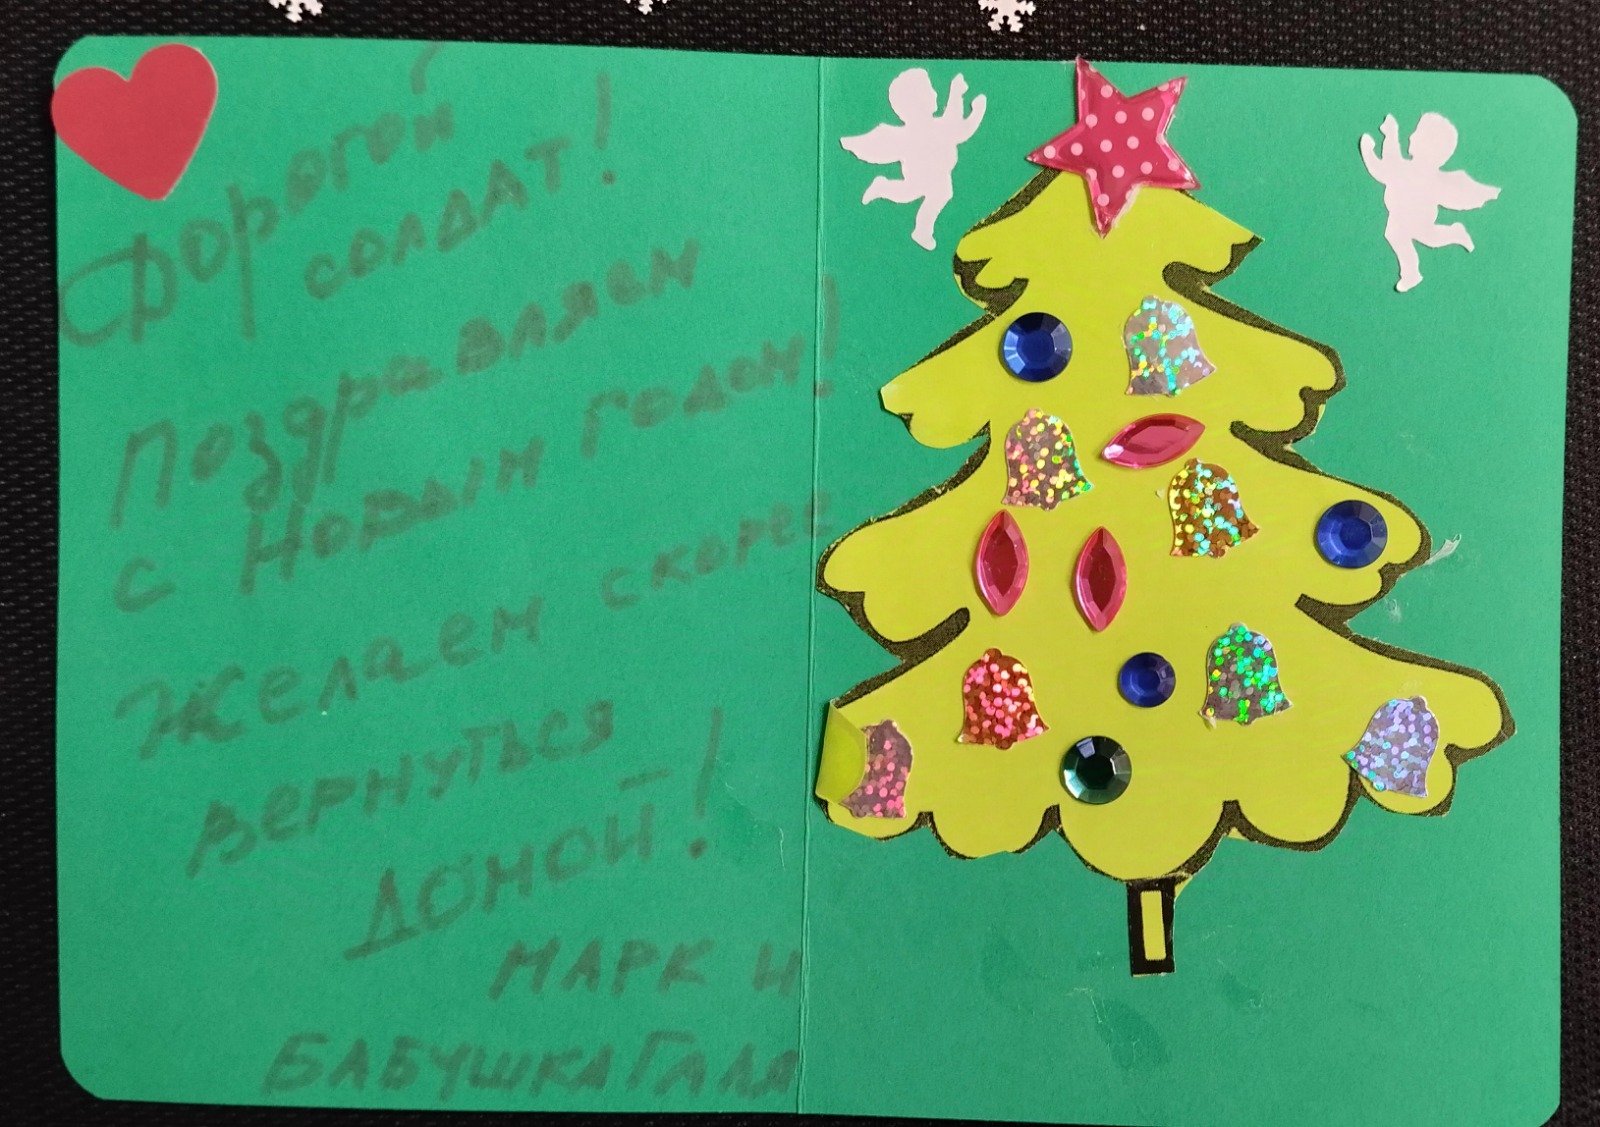 Дорогой
солдат!
Поздравляем
с Новым годом!
Желаем скорее
вернуться
домой!
МАРК И
БАБУШКА ГАЛЯ